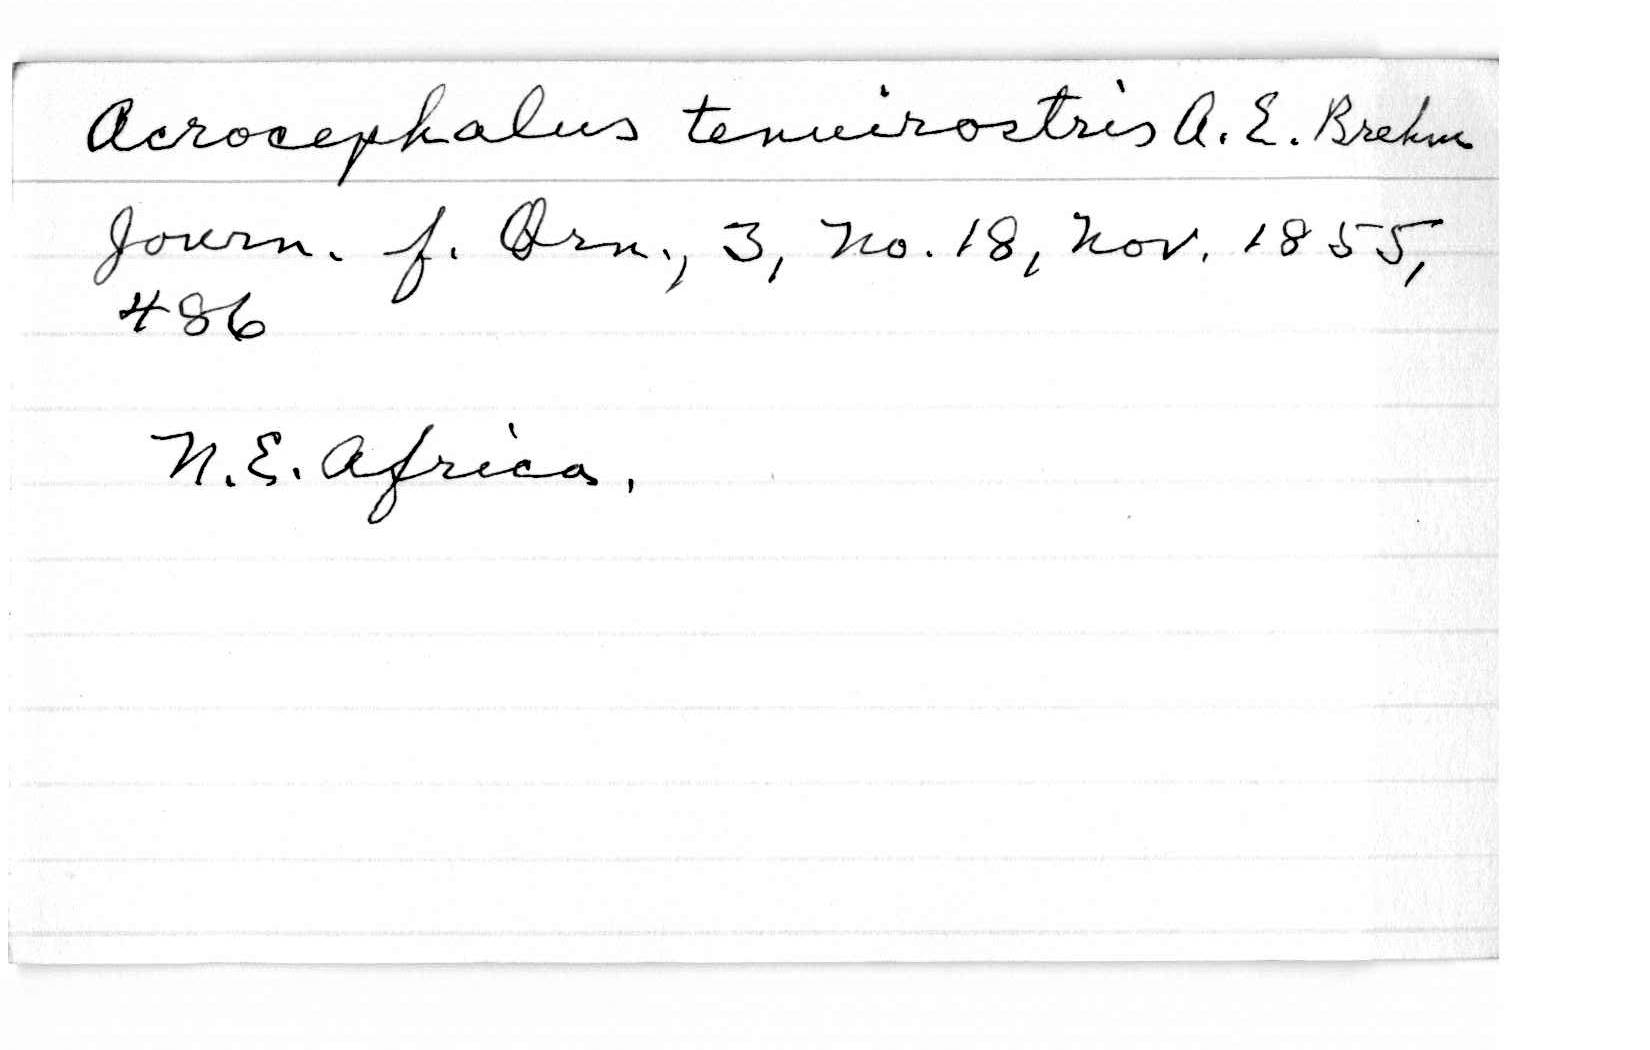 Acrocephalus tenuirostris A. E. Brehm
Journ. f. Orn., 3, No. 18, Nov. 1855,
486
N. E. Africa.